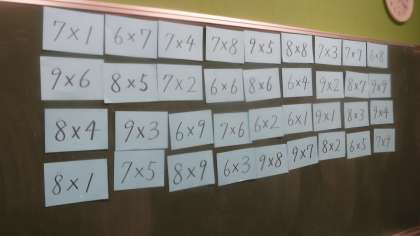 7×1 6×7 7×4 7×8 9×5 8×8 7×3 7×7 6×8
9×6 8×5 7×2 6×6 8×6 6×4 9×2 8×7 9×9
8×4 9×3 6×9 7×6 6×2 6×1 9×1 8×3 9×4
8×1 7×5 8×9 6×3 9×8 9×7 8×2 6×5 7×9